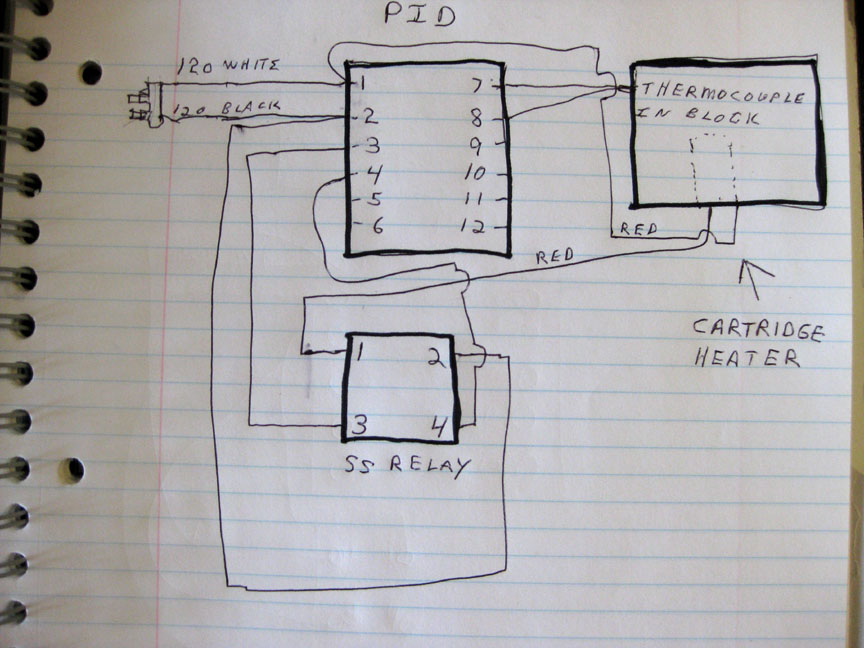 PID
120 WHITE
120 BLACK
1
2
3
4
5
6
7
8
9
10
11
12
THERMOCOUPLE
IN BLOCK
RED
RED
CARTRIDGE
HEATER
1
2
3
4
SS RELAY